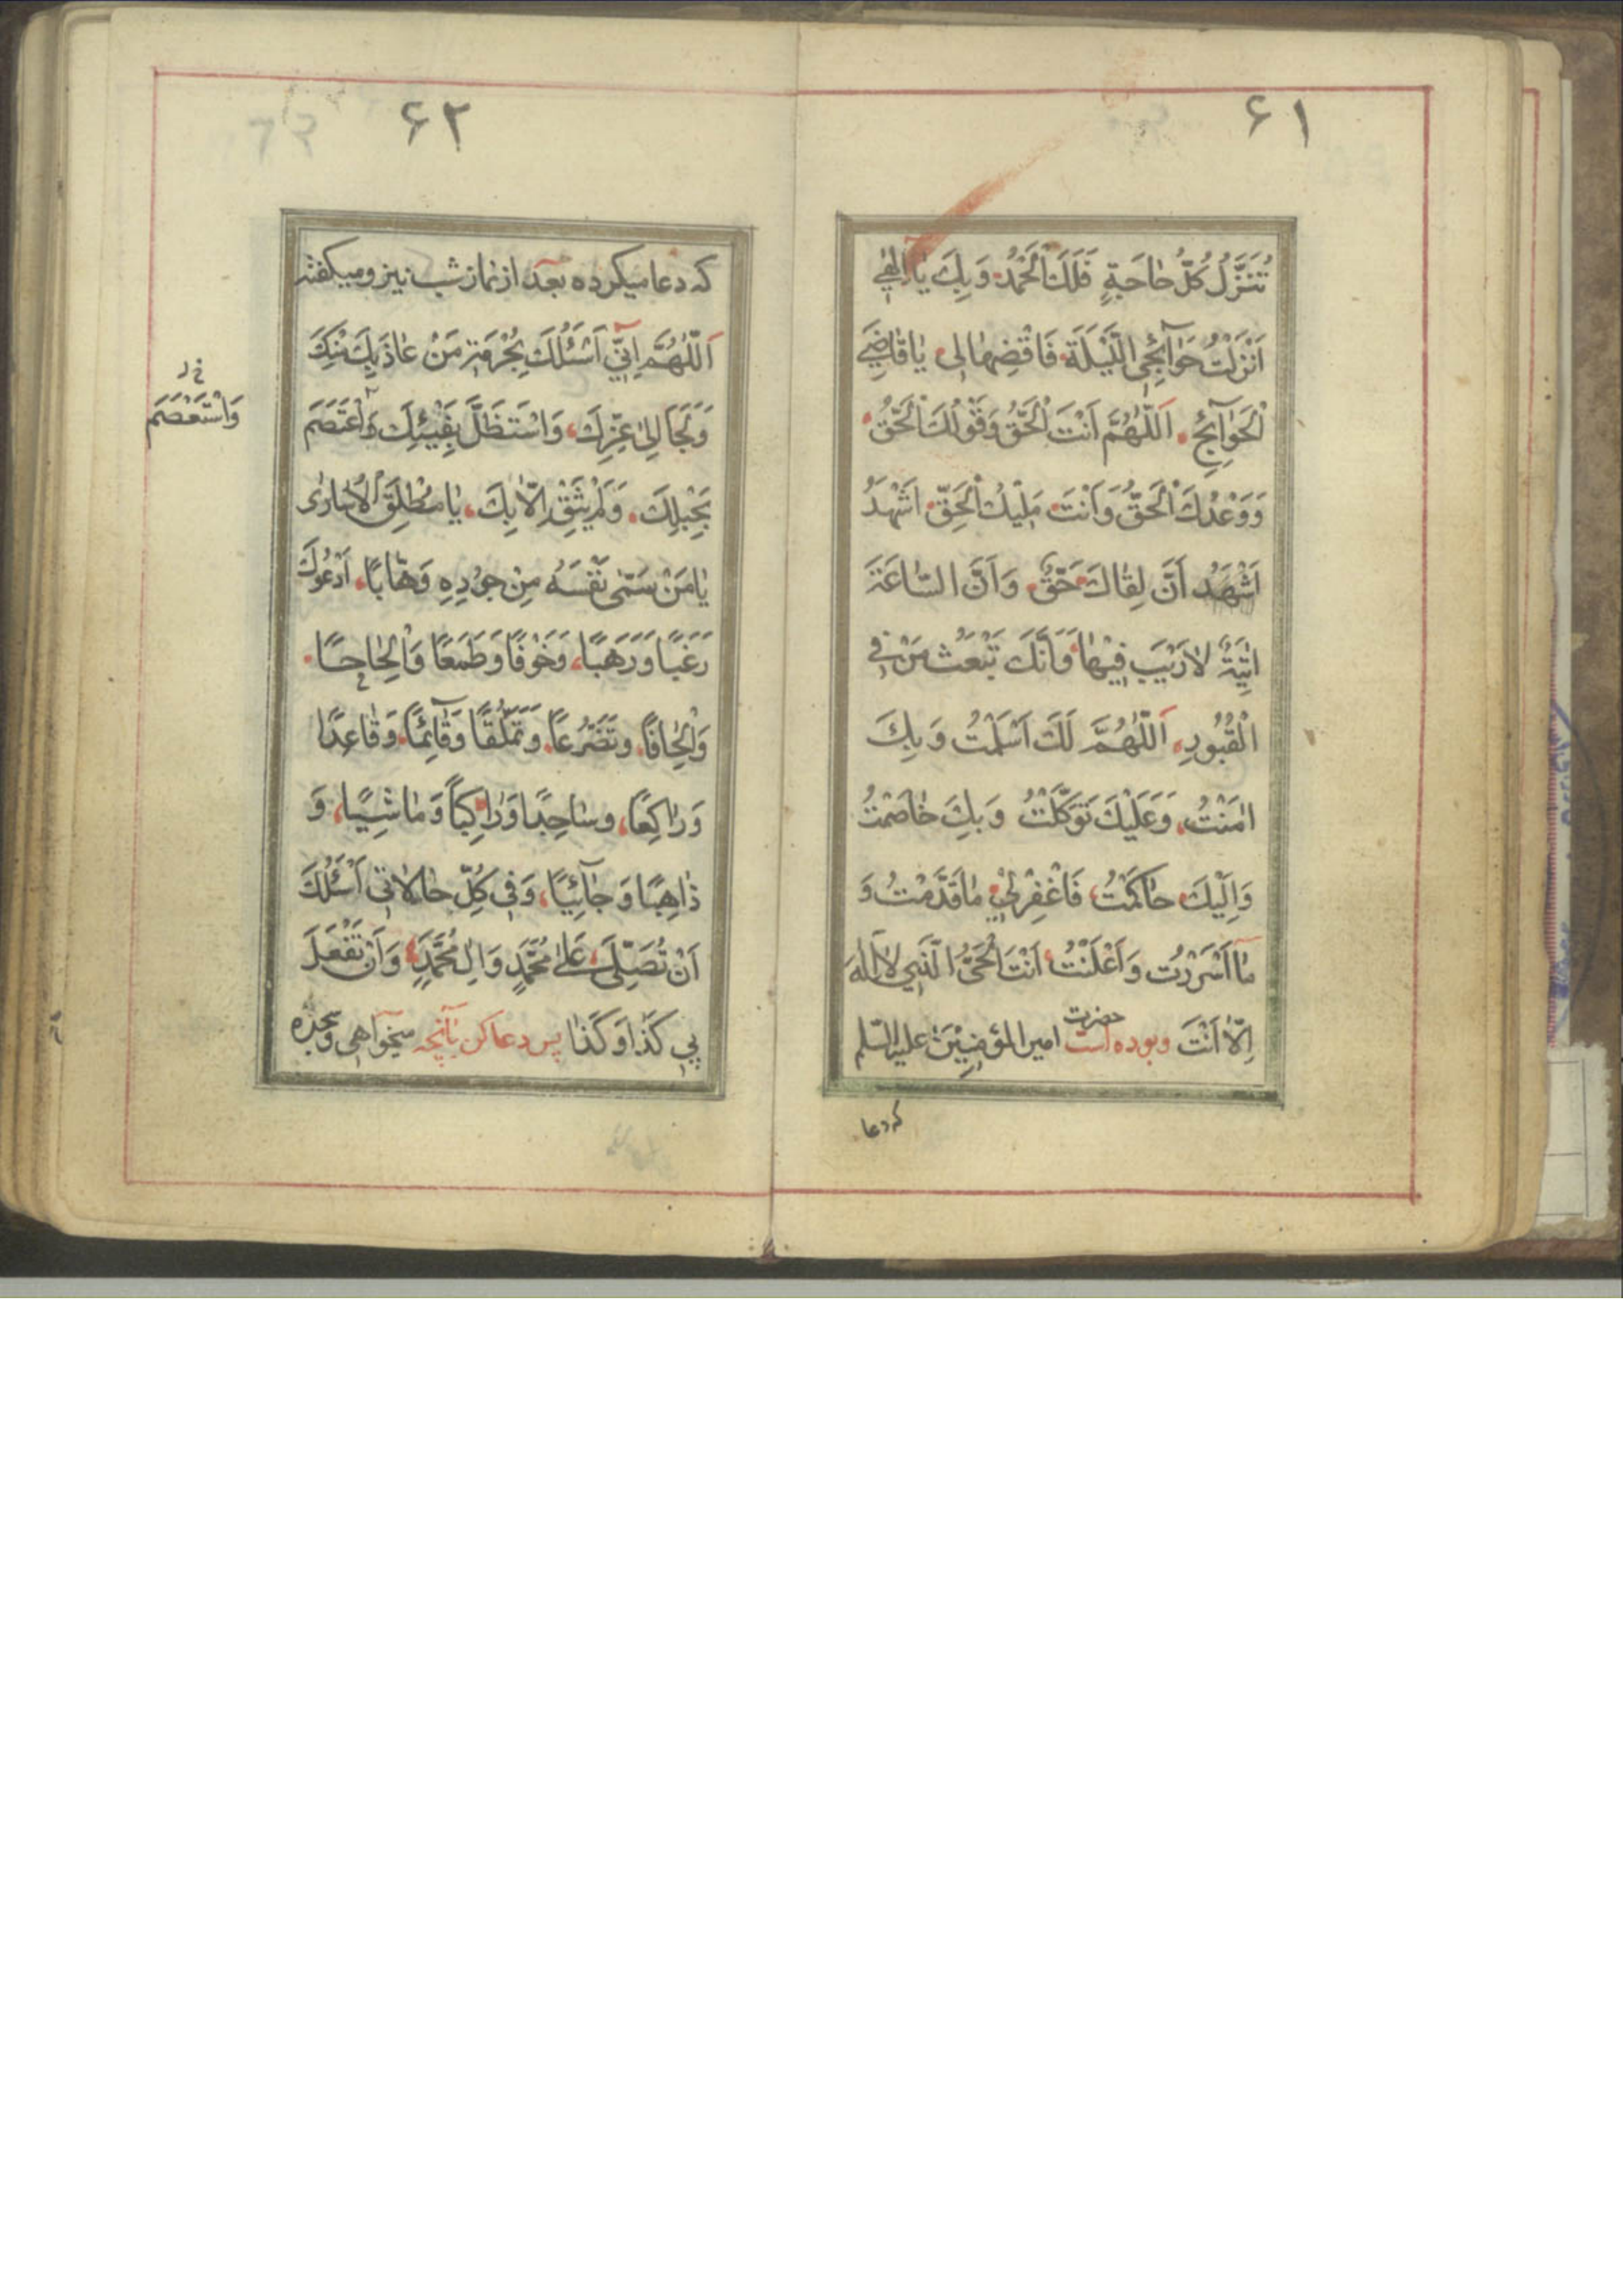 ۶۱
تُنَزَّلُ كُلُّ حٰاجَةٍ فَلَكَ الْحَمْدُ وَبِكَ يٰا اِلٰهٖي
اَنْزَلْتُ حَوٰآئِجِى اللَّيْلَةَ فَاقْضِهٰا لِى يٰا قٰاضِيَ
الْحَوٰآئِجِ اَللّٰهُمَّ اَنْتَ الْحَقُّ وَقَوْلُكَ الْحَقُّ
وَوَعْدُكَ الْحَقُّ وَاَنْتَ مَلِيْكُ الْحَقِّ اَشْهَدُ
اَشْهَدُ اَنَّ لِقٰاكَ حَقٌّ وَاَنَّ السّٰاعَةَ
اٰتِيَةٌ لٰارَيْبَ فِيْهٰا وَاَنَّكَ تَبْعَثُ مَنْ فِي
الْقُبُورِ اَللّٰهُمَّ لَكَ اَسْلَمْتُ وَبِكَ
اٰمَنْتُ، وَعَلَيْكَ تَوَكَّلْتُ وَبِكَ خٰاصَمْتُ
وَاِلَيْكَ حٰاكَمْتُ، فَاغْفِرْلِيْ مٰاقَدَّمْتُ وَ
مٰا اَسْرَرْتُ وَاَعْلَنْتُ اَنْتَ الْحَىُّ الَّذِي لٰا اِلٰهَ
اِلّٰا اَنْتَ وبوده است حضرت امیر المؤمنین علیه السّلم
که دعا
۶۲
که دعا میکرده بعد از نماز شب نیز و میکفته
اَللّٰهُمَّ اِنّٖي اَسْئَلُكَ بِحُرْمَةِ مَنْ عٰاذَ بِكَ مِنْكَ
وَلَجَاَ اِلىٰ عِزِّكَ، وَاسْتَظَلَّ بِفَيْئِكَ وَاعْتَصَمَ
وَاسْتَعْصَمَ
بِحَبْلِكَ، وَلَمْ يَثِقْ اِلّٰا بِكَ، يٰا مُطْلِقَ الْاُسٰارىٰ
يٰا مَنْ سَمّٰى نَفْسَهُ مِنْ جُوْدِهِ وَهّٰابًا، اَدْعُوكَ
رَغَبًا وَرَهَبًا، وَخَوْفًا وَطَمَعًا وَاِلْحٰاحًا
وَاِلْحٰافًا، وتَضَرُّعًا، وَتَمَلُّقًا وَقٰآئِمًا، وَقٰاعِدًا
وَرٰاكِعًا، وسٰاجِدًا وَرٰاكِبًا وَمٰاشِيًا، وَ
ذٰاهِبًا وَجٰآئِيًا، وَفٖي كُلِّ حٰالٰاتٖي اَسْئَلُكَ
اَنْ تُصَلِّىَ عَلىٰ مُحَمَّدٍ وَاٰلِ مُحَمَّدٍ، وَاَنْ تَفْعَلَ
بٖي كَذٰا وَكَذٰا پس دعا کن بآنچه میخواهی وسجده